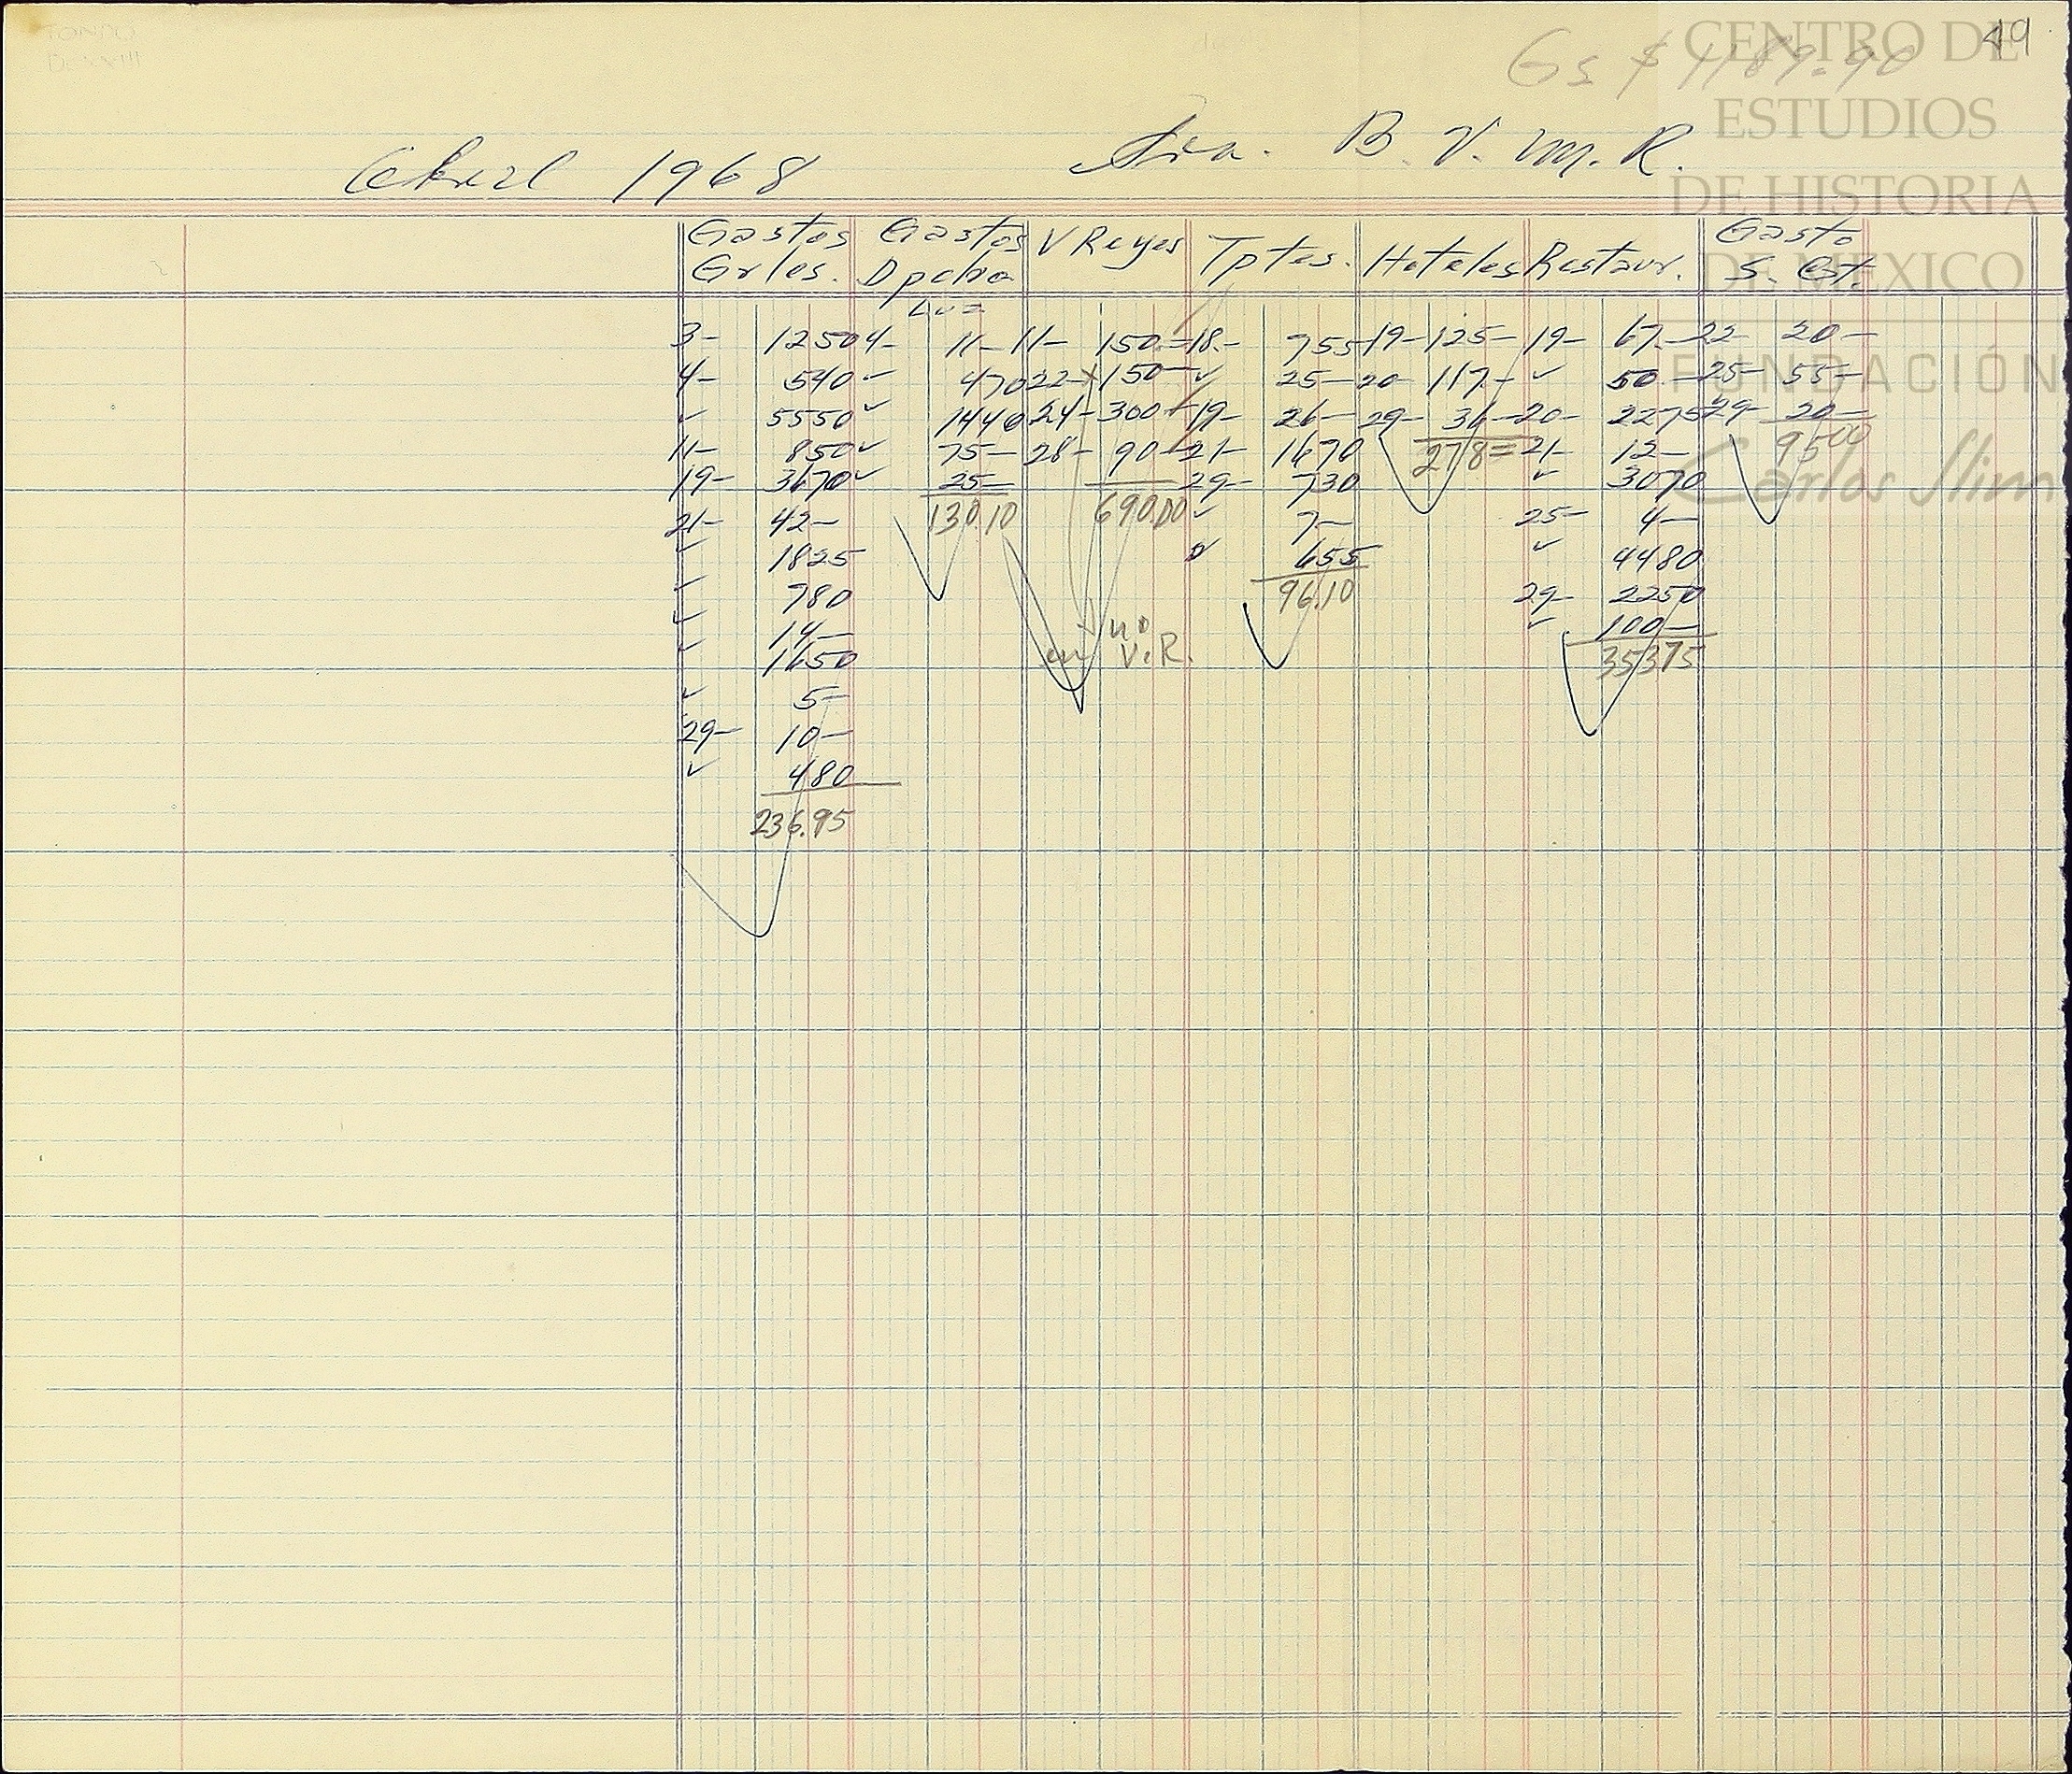 FONDO
DCXXIII
49
Gs $ 1189.90
CENTRO DE
ESTUDIOS
DE HISTORIA
DE MEXICO
FUNDACIÓN
Carlos Slim
Abril 1968 Sra. B. V. M. R.
Gastos Gastos V Reyes Tptes. Hoteles Restaur. Gasto
Grles. Dpcho S. Est.
Luz
3- 1250 4- 11- 11- 150.- 18.- 755 19- 125- 19- 67.- 22- 20-
4- 540 ✓ 470 22- x 150- ✓ 25- 20- 117- ✓ 50.- 25- 55-
✓ 5550 ✓ 1440 24- 300- 19- 26- 29- 36- 20- 2275 29- 20-
11- 850 ✓ 75- 28- 90- 21- 1670 278= 21- 12- 9500
19- 3670 ✓ 25- 29- 730 ✓ 3070
21- 42- 130.10 690.00 ✓ 7- 25- 4-
✓ 1825 ✓ 655 ✓ 4480
✓ 780 96.10 29- 2250
✓ 14- no ✓ 100-
✓ 1650 en V.R. 35375
✓ 5-
29- 10-
✓ 480
236.95